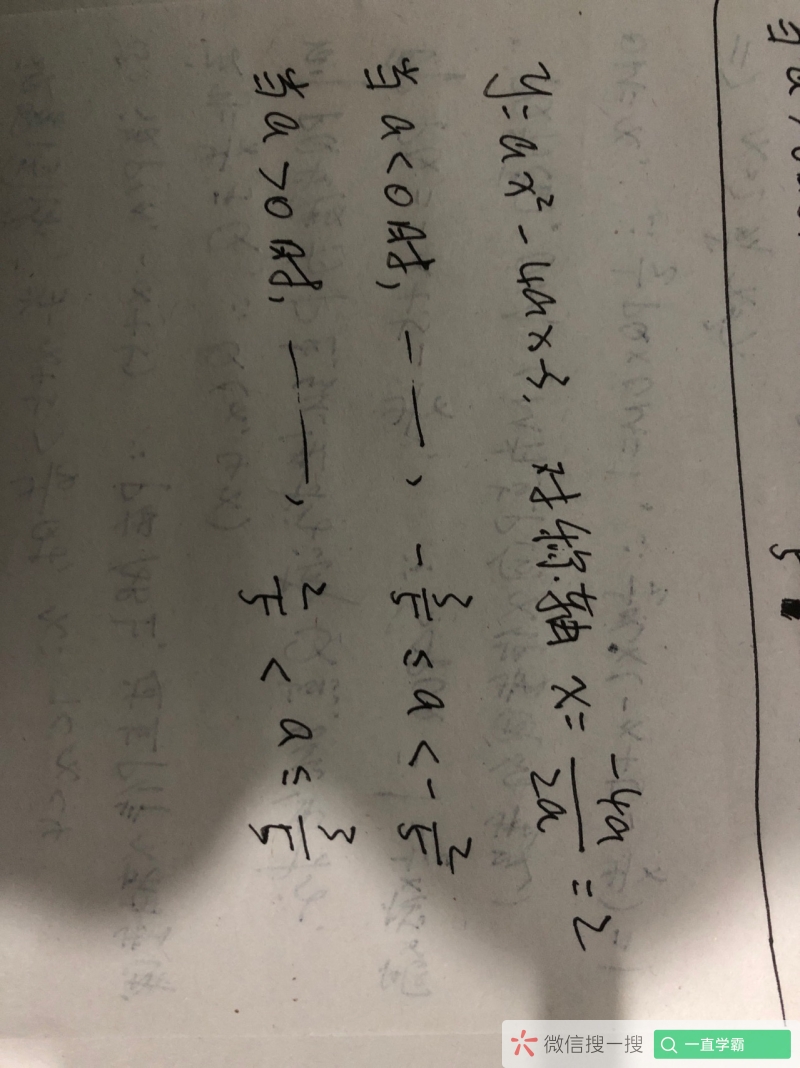 y=ax²-4ax-3, 对称轴 x=\frac{-4a}{2a}=2
当 a<0时, — —, -\frac{3}{5}≤a<-\frac{2}{5}
当 a>0时, — —, \frac{2}{5}<a≤\frac{3}{5}
微信搜一搜
一直学霸